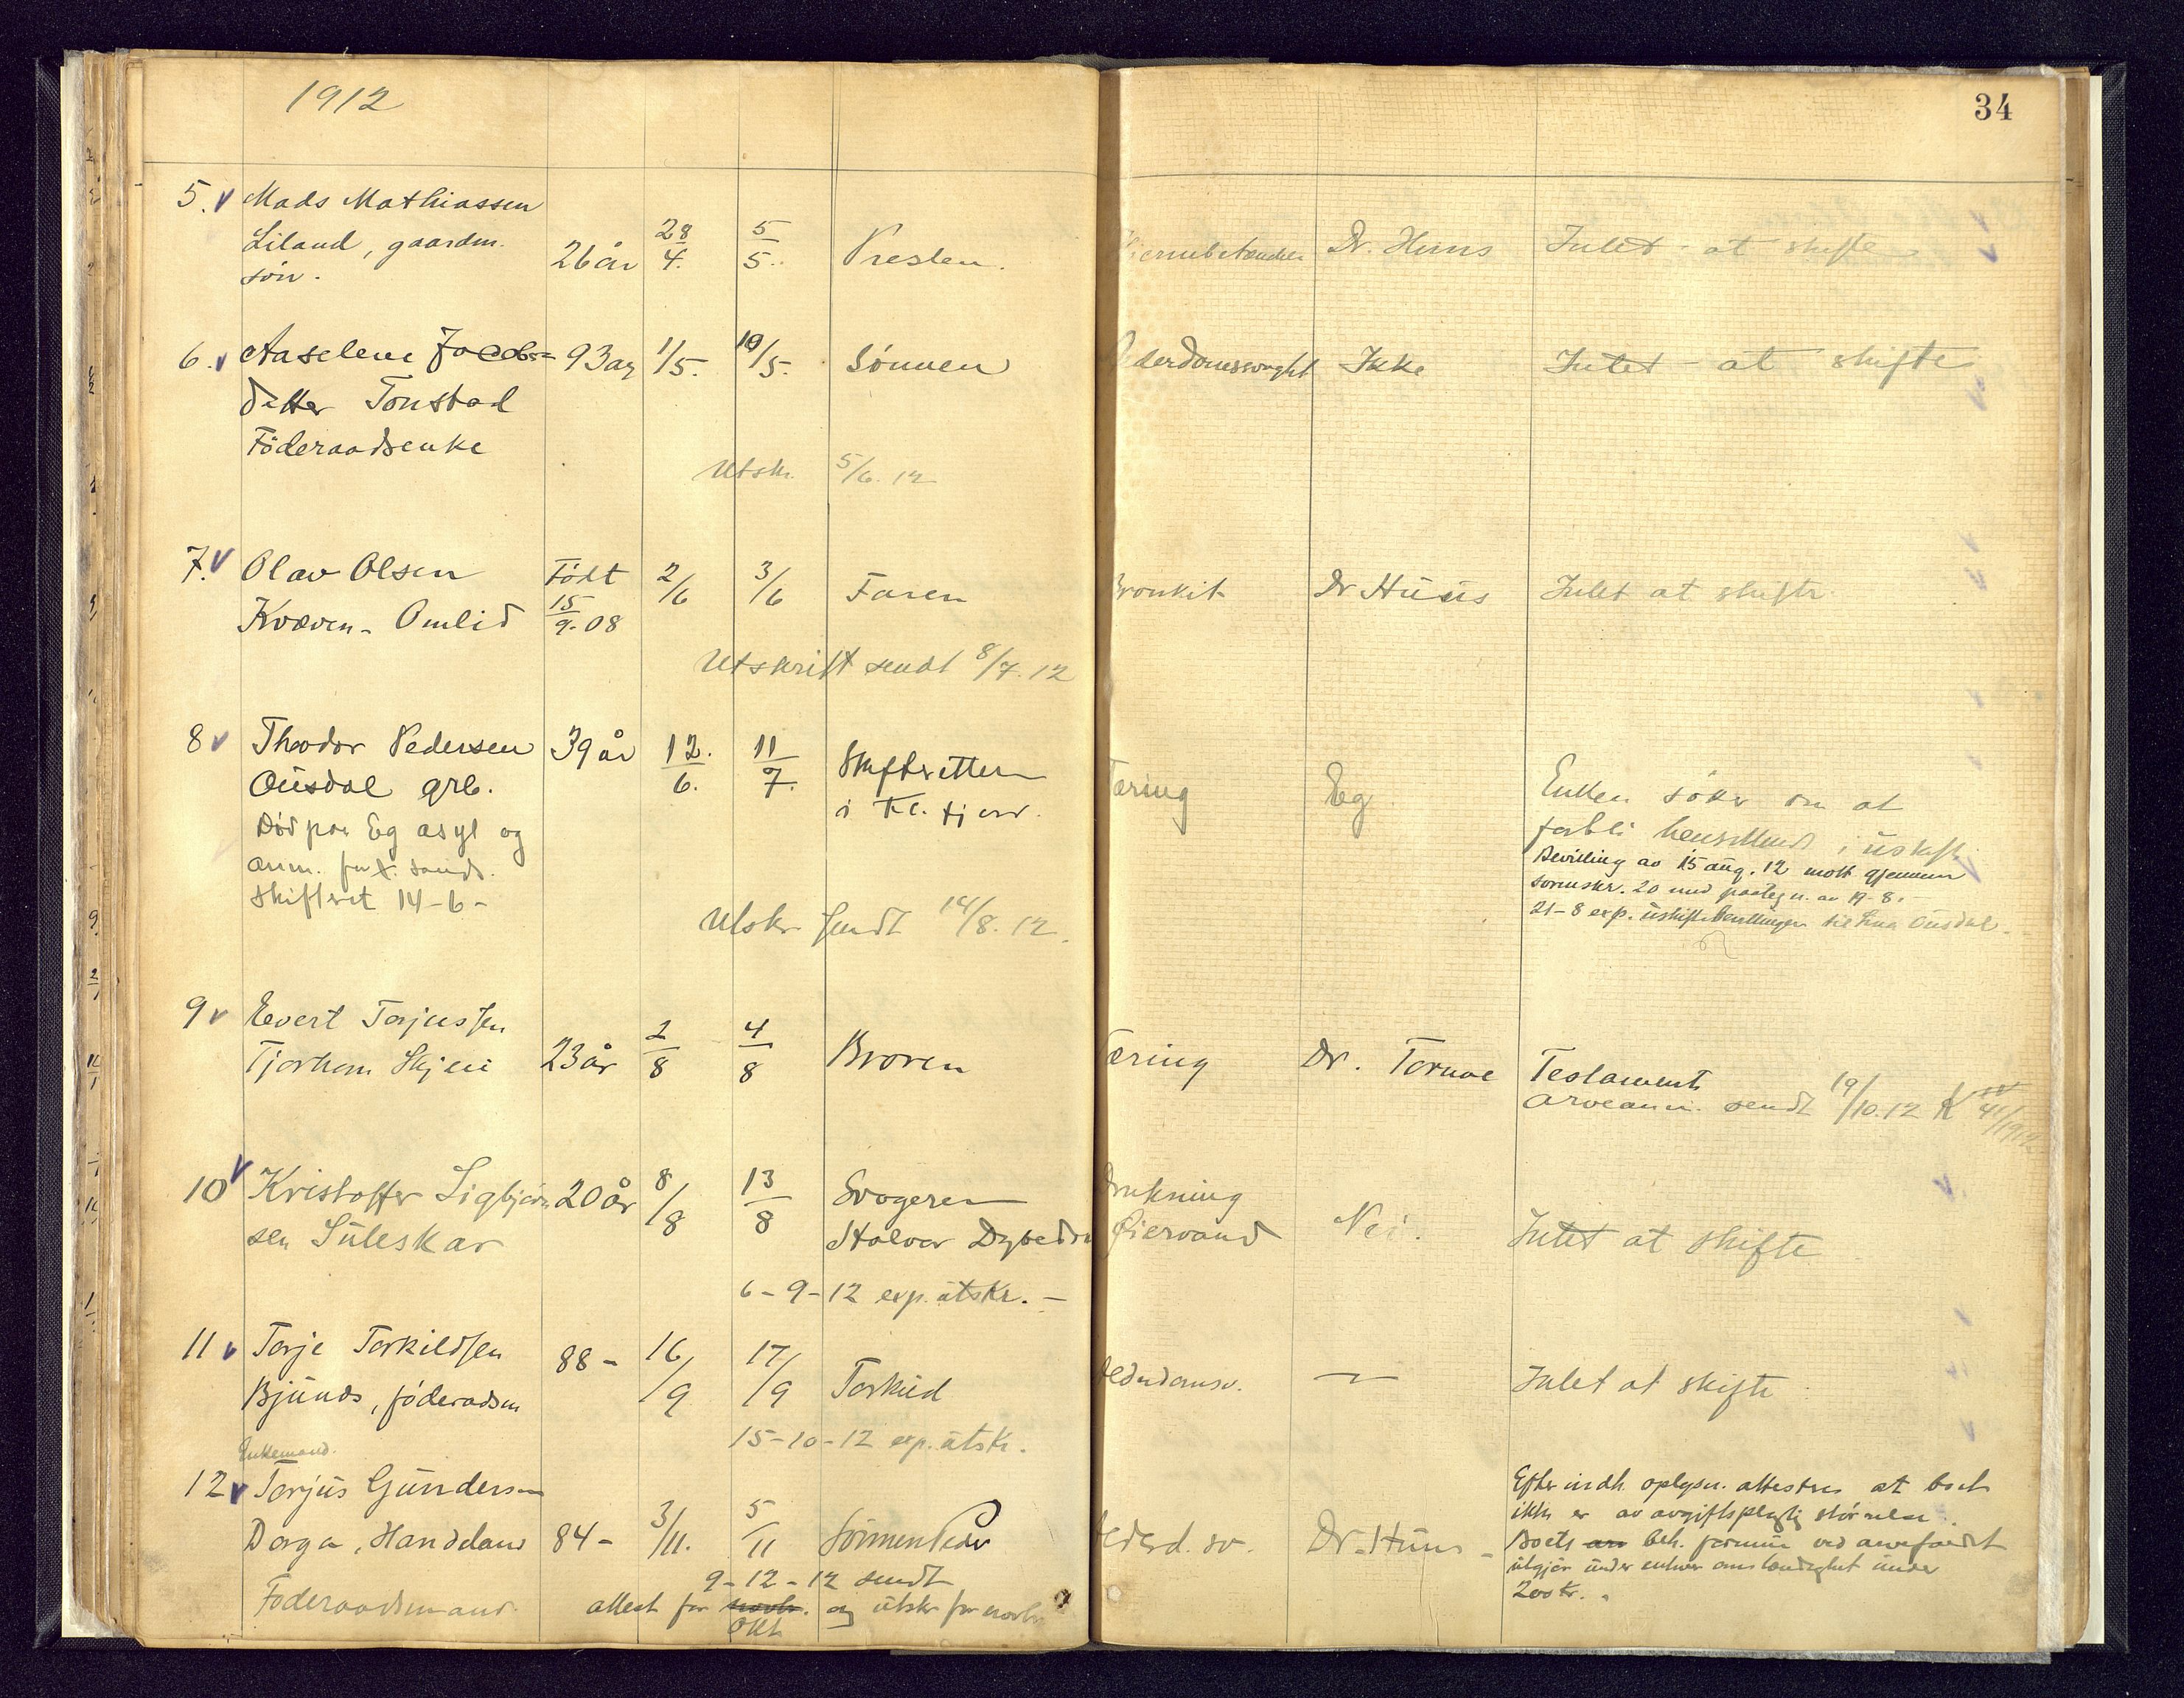 1912
34
5. Mads Mathiassen
Liland, gaardm.
søn.
26 år 28/4. 5/5. Presten.
Dr. Huus Intet at skifte
6. Aaselene Jacobs=
detter Tonstad
Föderaadsenke
93 1/5. 10/5. Sønnen
Ikke Intet at skifte
Utskr. 5/6. 12
7. Olav Olsen
Kvæven - Omlid
Födt
15/9. 08
2/6 3/6 Faren
Bronkit Dr Huus Intet at skifte
Utskrift sendt 8/7. 12
8 Theodor Pedersen
Ousdal grb.
Död paa Eg asyl og
anm. for Kr.sands.
skifteret 14-6-
39 år 12./6. 11/7. Skifteretten
i Fl. fjord.
Tæring Eg
Enken søker om at
forbli hensittende i uskift.
Bevilling av 15 aug. 12 mott gjennem
sorenskr. 20 med paategn. av 19-8.-
21-8 exp. uskiftebevillingen til Enke Ousdal.
Utskr sendt 14/8. 12.
9 Evert Torjussen
Tjorhom Skjeii
23 år 2/8 4/8 Broren
Tæring Dr. Tornøe Testament
arveanm. sendt 19/10. 12
10 Kristoffer Sigbjørn
sen Suleskar
20 år 8/8 13/8 Svogeren
Halvor
Drukning
Øiervand
Nei. Intet at skifte
6-9-12 exp. utskr. -
11 Torje Torkildsen
Bjunes, föderadsm
88 - 16/9 17/9 Torkild
Intet at skifte
15-10-12 exp. utskr.
Enkemand.
12 Torjus Gundersen
Dorga, Handeland
Föderaadsmand
84 - 3/11. 5/11 Sönnen Peder
Dr. Huus -
Efter indh. oplysn. attesteres at boet
ikke er av avgiftspligtig störrelse.
Boets beh. formue ved arvefaldet
utgjør under enhver omstændighet under
200 kr.
9-12-12 sendt
attest for novbr. og utskr for novbr
okt.